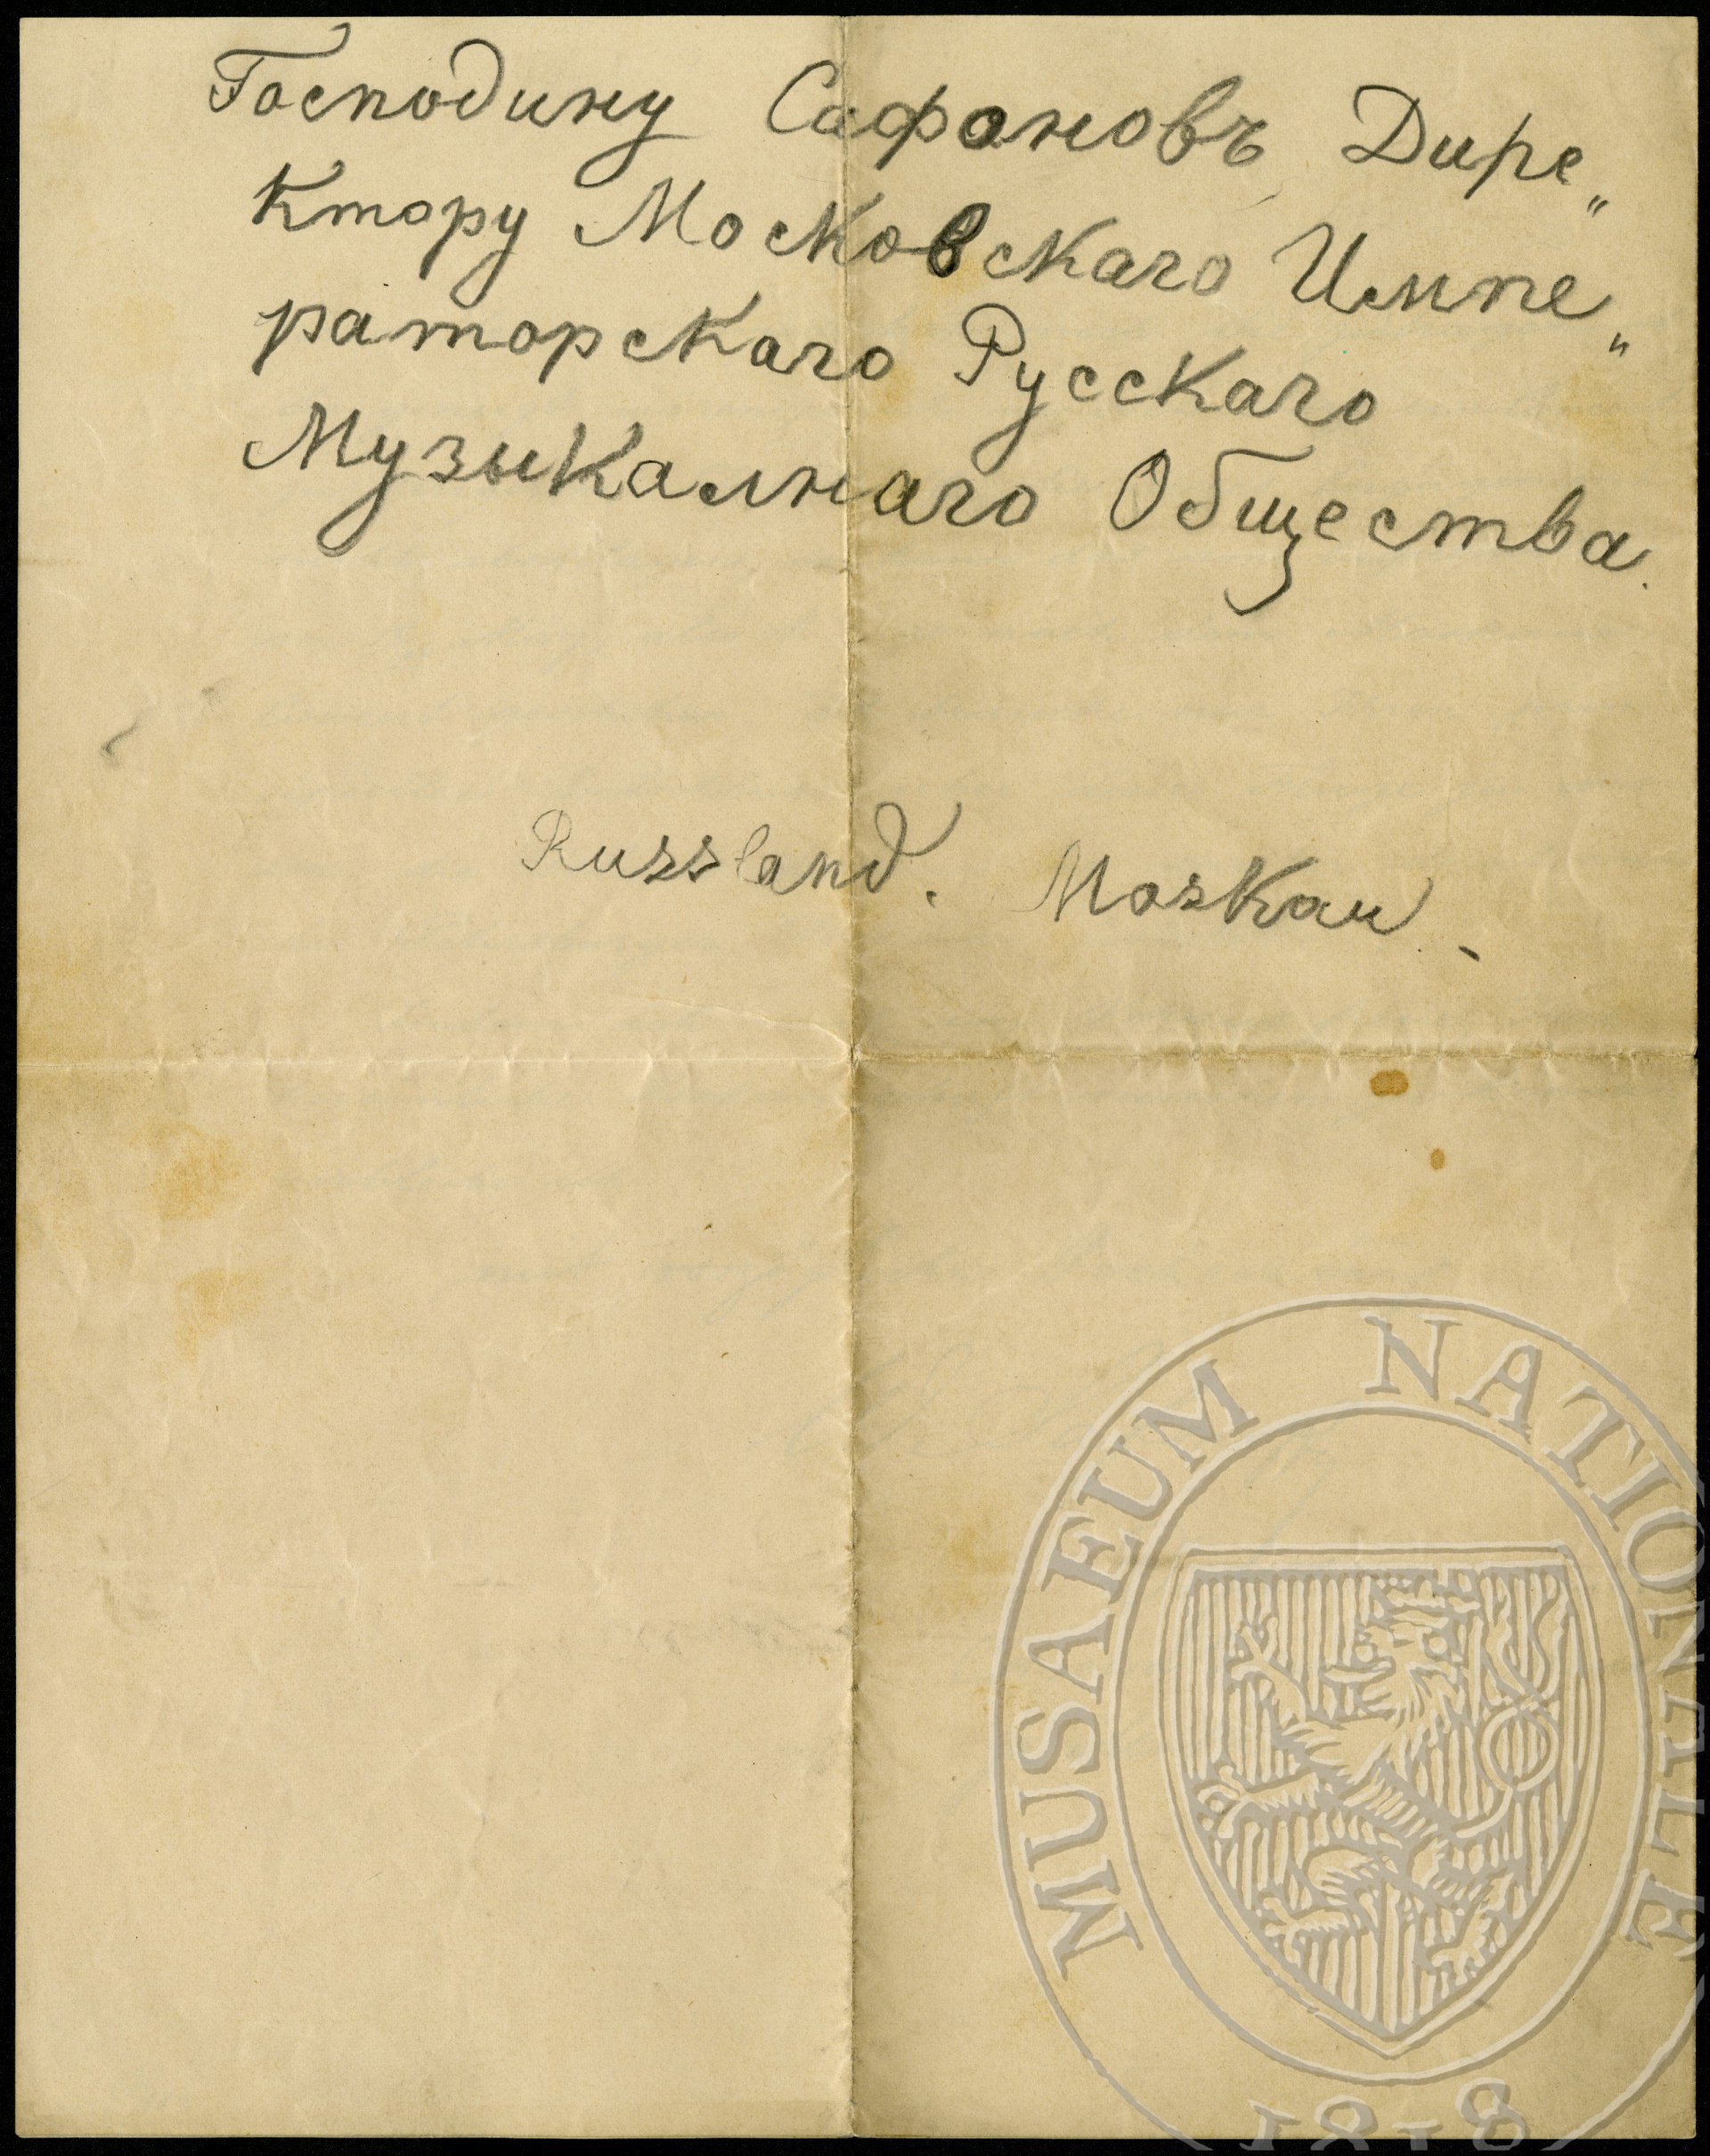 Господину Сафоновъ Дире„
Ктору Московскаго Импе„
раторскаго Русскаго
Музыкалнаго Общества.
Russland. Moskau.
MUSAEUM NATIONALE
1818